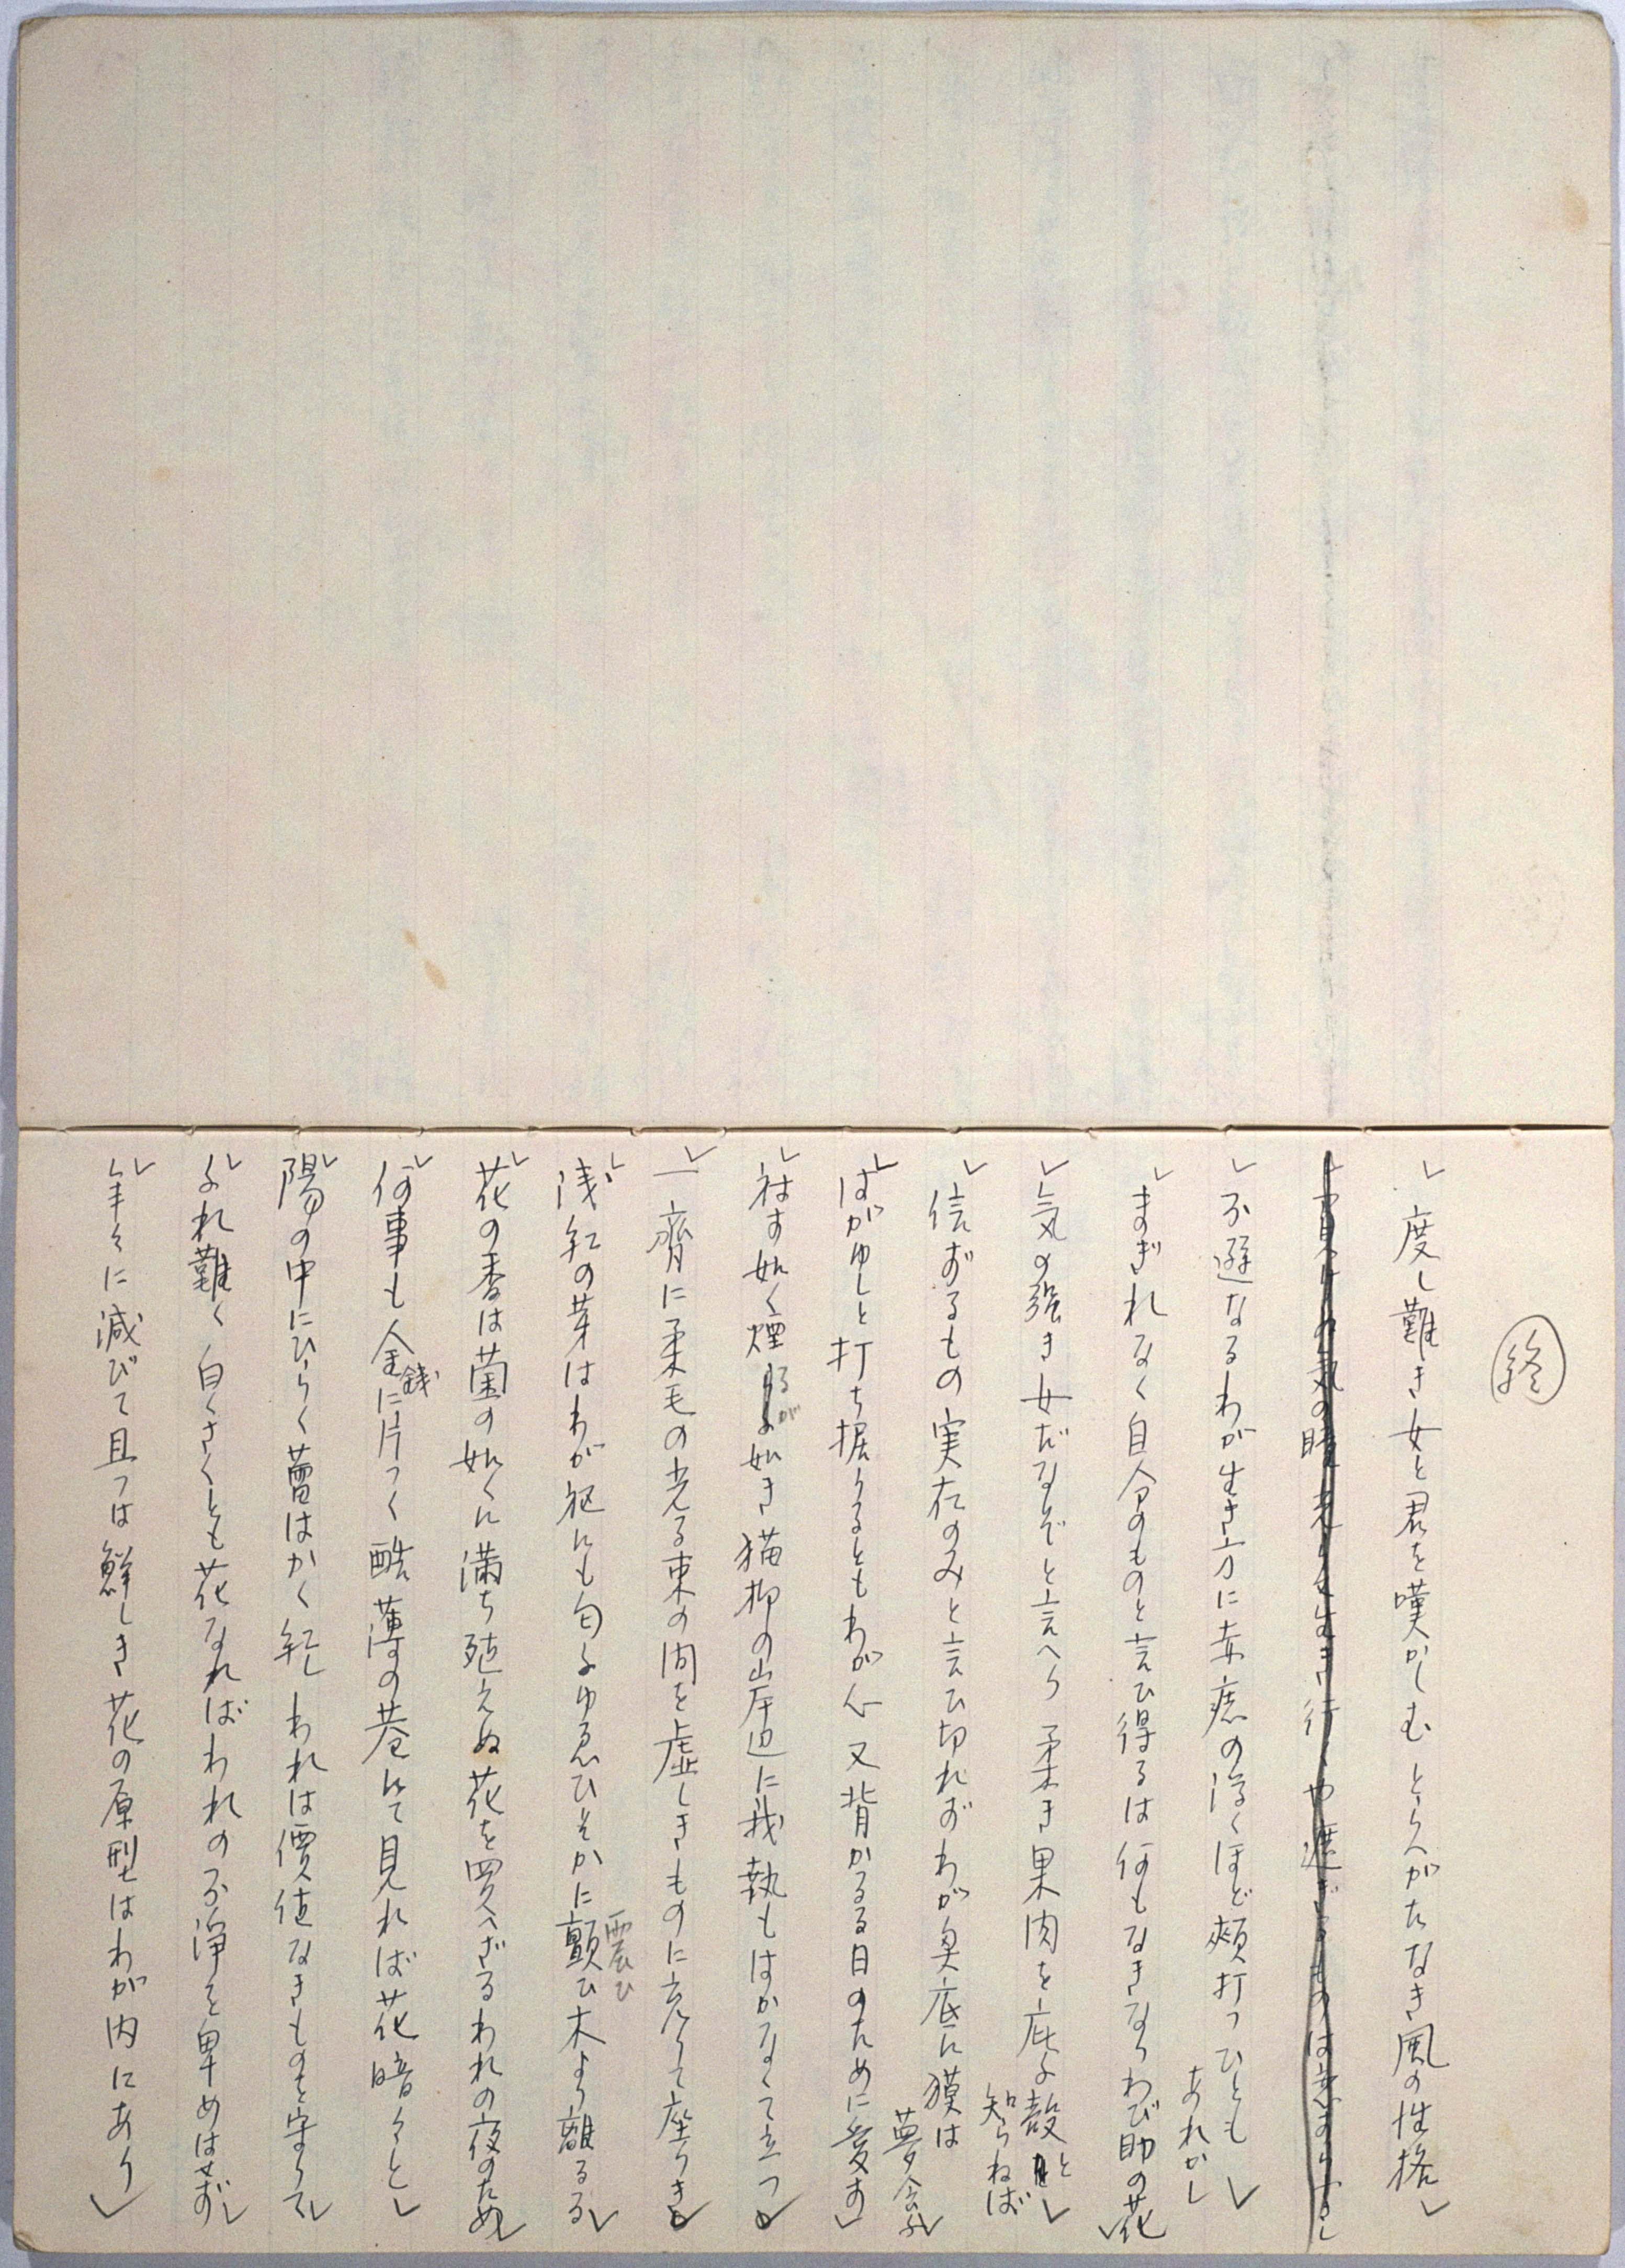 終
度し難き女と君を嘆かしむとらへがたなき風の性格
不遜なるわが生き方に赤痣の浮くほど頬打つひともあれかし
まぎれなく自分のものと言ひ得るは何もなきなりわび助の花
気の強き女だなぞと言へり柔き果肉を庇ふ殻と知らねば
信ずるもの実在のみと言ひ切れずわが奥底に獏は夢会ふ
はがゆしと打ち据うるともわが心又背かるる日のために愛す
祓す如く煙るが如き猫柳の岸辺に我執もはかなくて立つ
一齊に柔毛の光る束の間を虚しきものに充ちて座りき
浅き紅の芽はわが袍にも匂ふゆゑひそかに顫ひ木より離るる
震ひ
花の香は菌の如くに満ち殖えぬ花を買へざるわれの夜のため
何事も金銭に片つく酷薄の巷にて見れば花暗々と
陽の中にひらく蕾はかく紅しわれは價値なきものを守りて
よれ難く白くさくとも花なればわれの不浄を卑めはせず
年々に減びて且つは鮮しき花の原型はわが内にあり